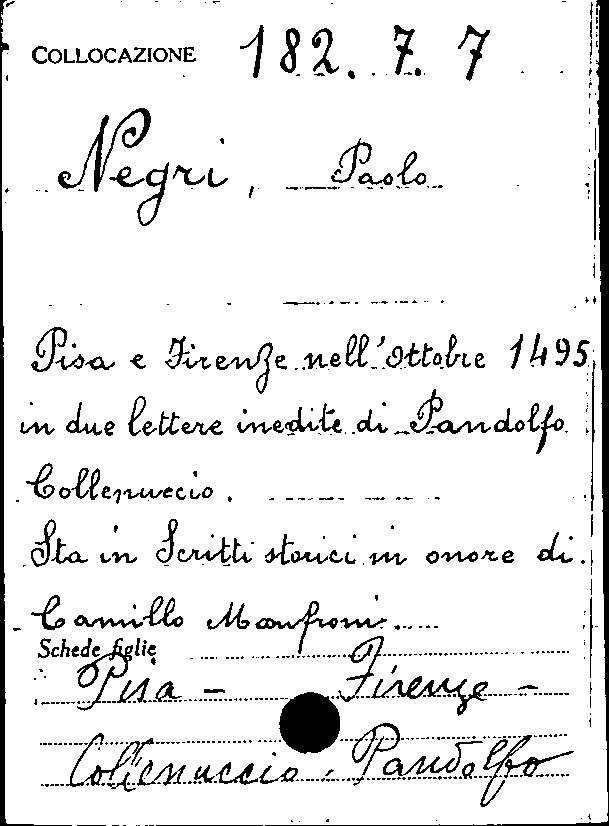 COLLOCAZIONE 182. 7. 7
Negri, Paolo
Pisa e Firenze nell'Ottobre 1495
in due lettere inedite di Pandolfo
Collenuccio.
Sta in Scritti storici in onore di
Camillo Manfroni.
Schede figlie
Pisa - Firenze -
Collenuccio, Pandolfo